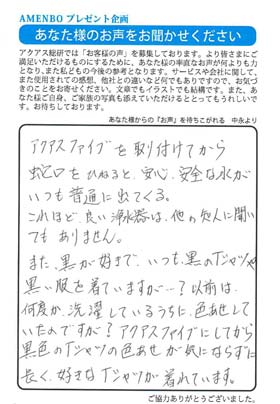 AMENBO プレゼント企画
あなた様のお声をお聞かせください
アクアス総研では「お客様の声」を募集しております。より皆さまにご
満足いただけるものにするために、あなた様の率直なお声が何よりも力
となり、また私どもの今後の参考となります。サービスや会社に関して、
また使用されての感想、他社との違いなど何でもありですので、お気づ
きのことをお寄せください。文章でもイラストでも結構です。また、あな
た様ご自身、ご家族の写真も添えていただけるととってもうれしいです。
お待ちしております。
あなた様からの『お声』を待ちこがれる 中永より
アクアスファイブを取り付けてから
蛇口をひねると、安心、安全な水が
いつも普通に出てくる。
これほど、良い浄水器は、他の知人に聞い
ても ありません。
また、黒が好きで、いつも、黒のTシャツや
黒い服を着ていますが…? 以前は、
何度か、洗濯しているうちに、色あせして
いたのですが? アクアスファイブにしてから
黒色のTシャツの色あせが気にならずに
長く、好きなTシャツが着れています。
ご協力ありがとうございました。